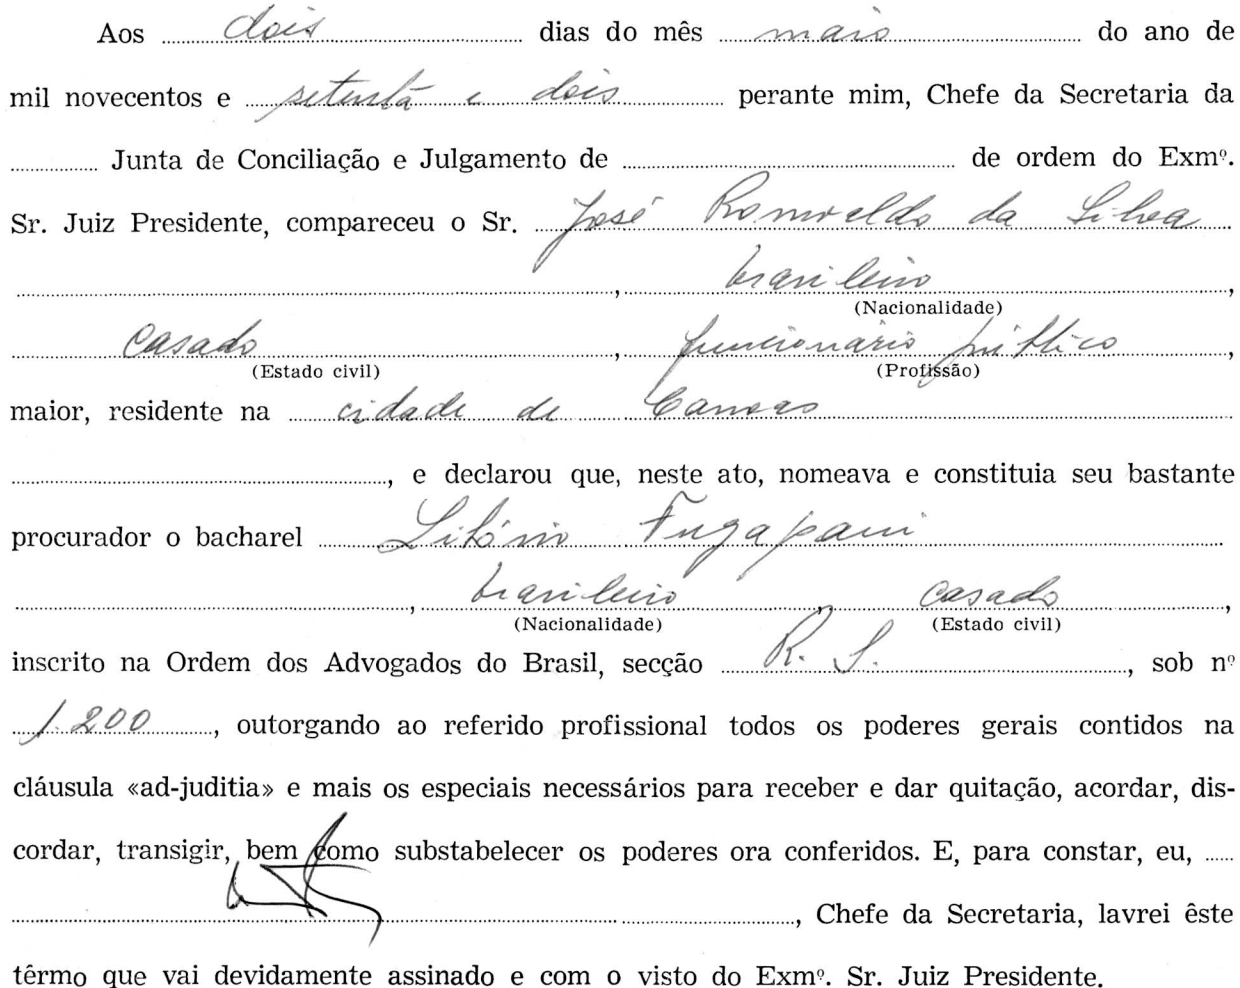 Aos dois dias do mês maio do ano de
mil novecentos e setenta e dois perante mim, Chefe da Secretaria da
Junta de Conciliação e Julgamento de de ordem do Exmº.
Sr. Juiz Presidente, compareceu o Sr. José Romualdo da Silva
, brasileiro,
(Nacionalidade)
casado, funcionário público,
(Estado civil) (Profissão)
maior, residente na cidade de Canoas
, e declarou que, neste ato, nomeava e constituia seu bastante
procurador o bacharel
, brasileiro, casado,
(Nacionalidade) (Estado civil)
inscrito na Ordem dos Advogados do Brasil, secção R. S., sob nº
1.200, outorgando ao referido profissional todos os poderes gerais contidos na
cláusula «ad-juditia» e mais os especiais necessários para receber e dar quitação, acordar, dis-
cordar, transigir, bem como substabelecer os poderes ora conferidos. E, para constar, eu,
, Chefe da Secretaria, lavrei êste
têrmo que vai devidamente assinado e com o visto do Exmº. Sr. Juiz Presidente.